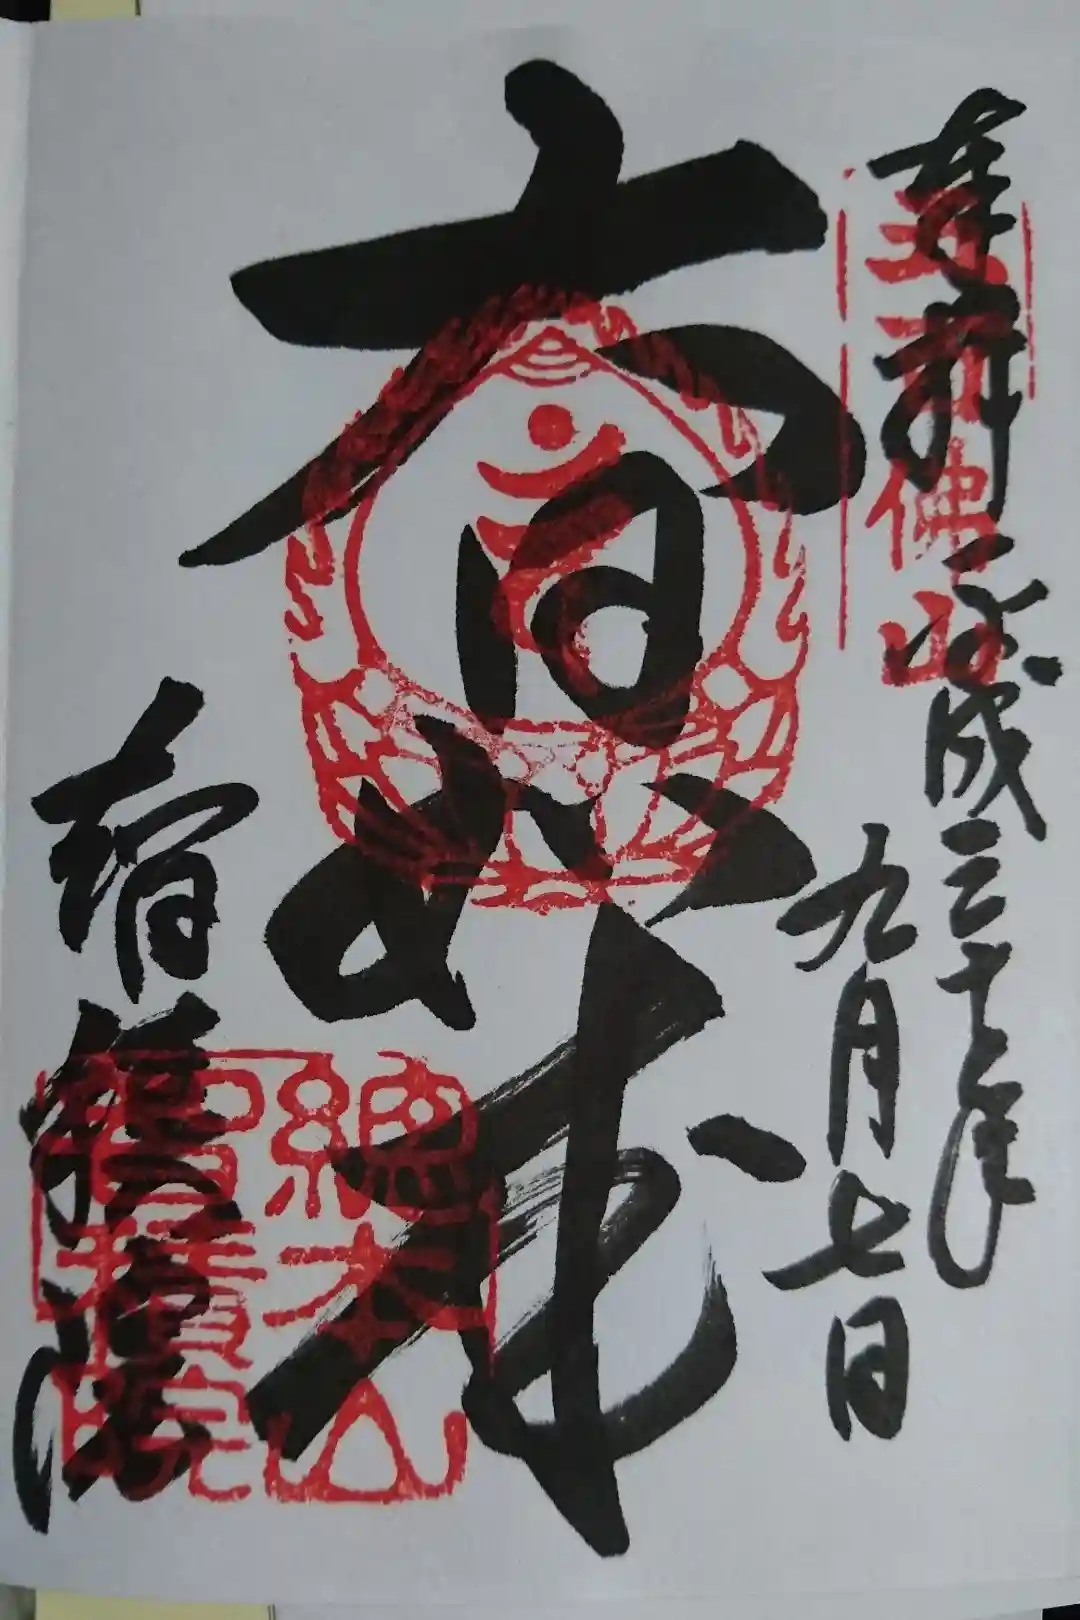 奉拝
五百佛山
平成三十年
九月七日
大日如来
智積院
總本山
智積院